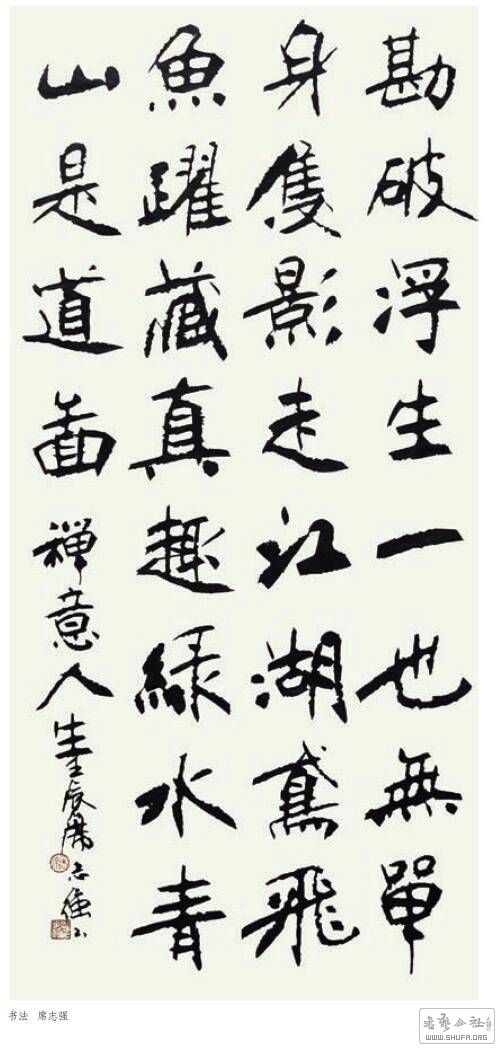 勘破浮生一也無單
身隻影走江湖鳶飛
魚躍藏真趣綠水青
山是道啚
禪意人生壬辰席志強书
书法 席志强
书艺公社
WWW.SHUFA.ORG